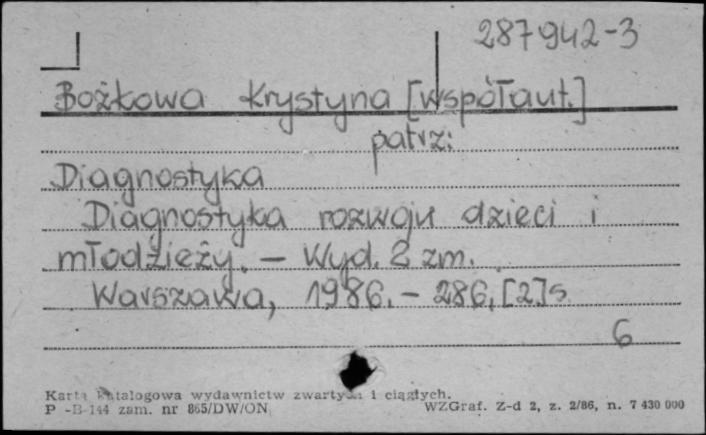 287942-3
Bożkowa Krystyna [współaut.]
patrz:
Diagnostyka
Diagnostyka rozwoju dzieci i
młodzieży. — Wyd. 2 zm.
Warszawa, 1986. – 286, [2] s
6
Karta katalogowa wydawnictw zwartych i ciągłych.
P -B-144 zam. nr 865/DW/ON WZGraf. Z-d 2, z. 2/86, n. 7 430 000